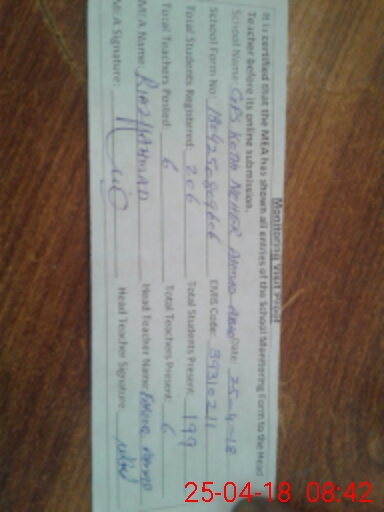 Monitoring Visit Proof
It is certified that the MEA has shown all entries of the School Monitoring Form to the Head
Teacher before its online submission.
School Name: GPS Date: 25-4-18
School Form No: EMIS Code: 39310211
Total Students Registered: 206 Total Students Present: 199
Total Teachers Posted: 6 Total Teachers Present: 6
MEA Name: RIAZ AHMAD Head Teacher Name: AHMAD
MEA Signature: Head Teacher Signature:
25-04-18 08:42